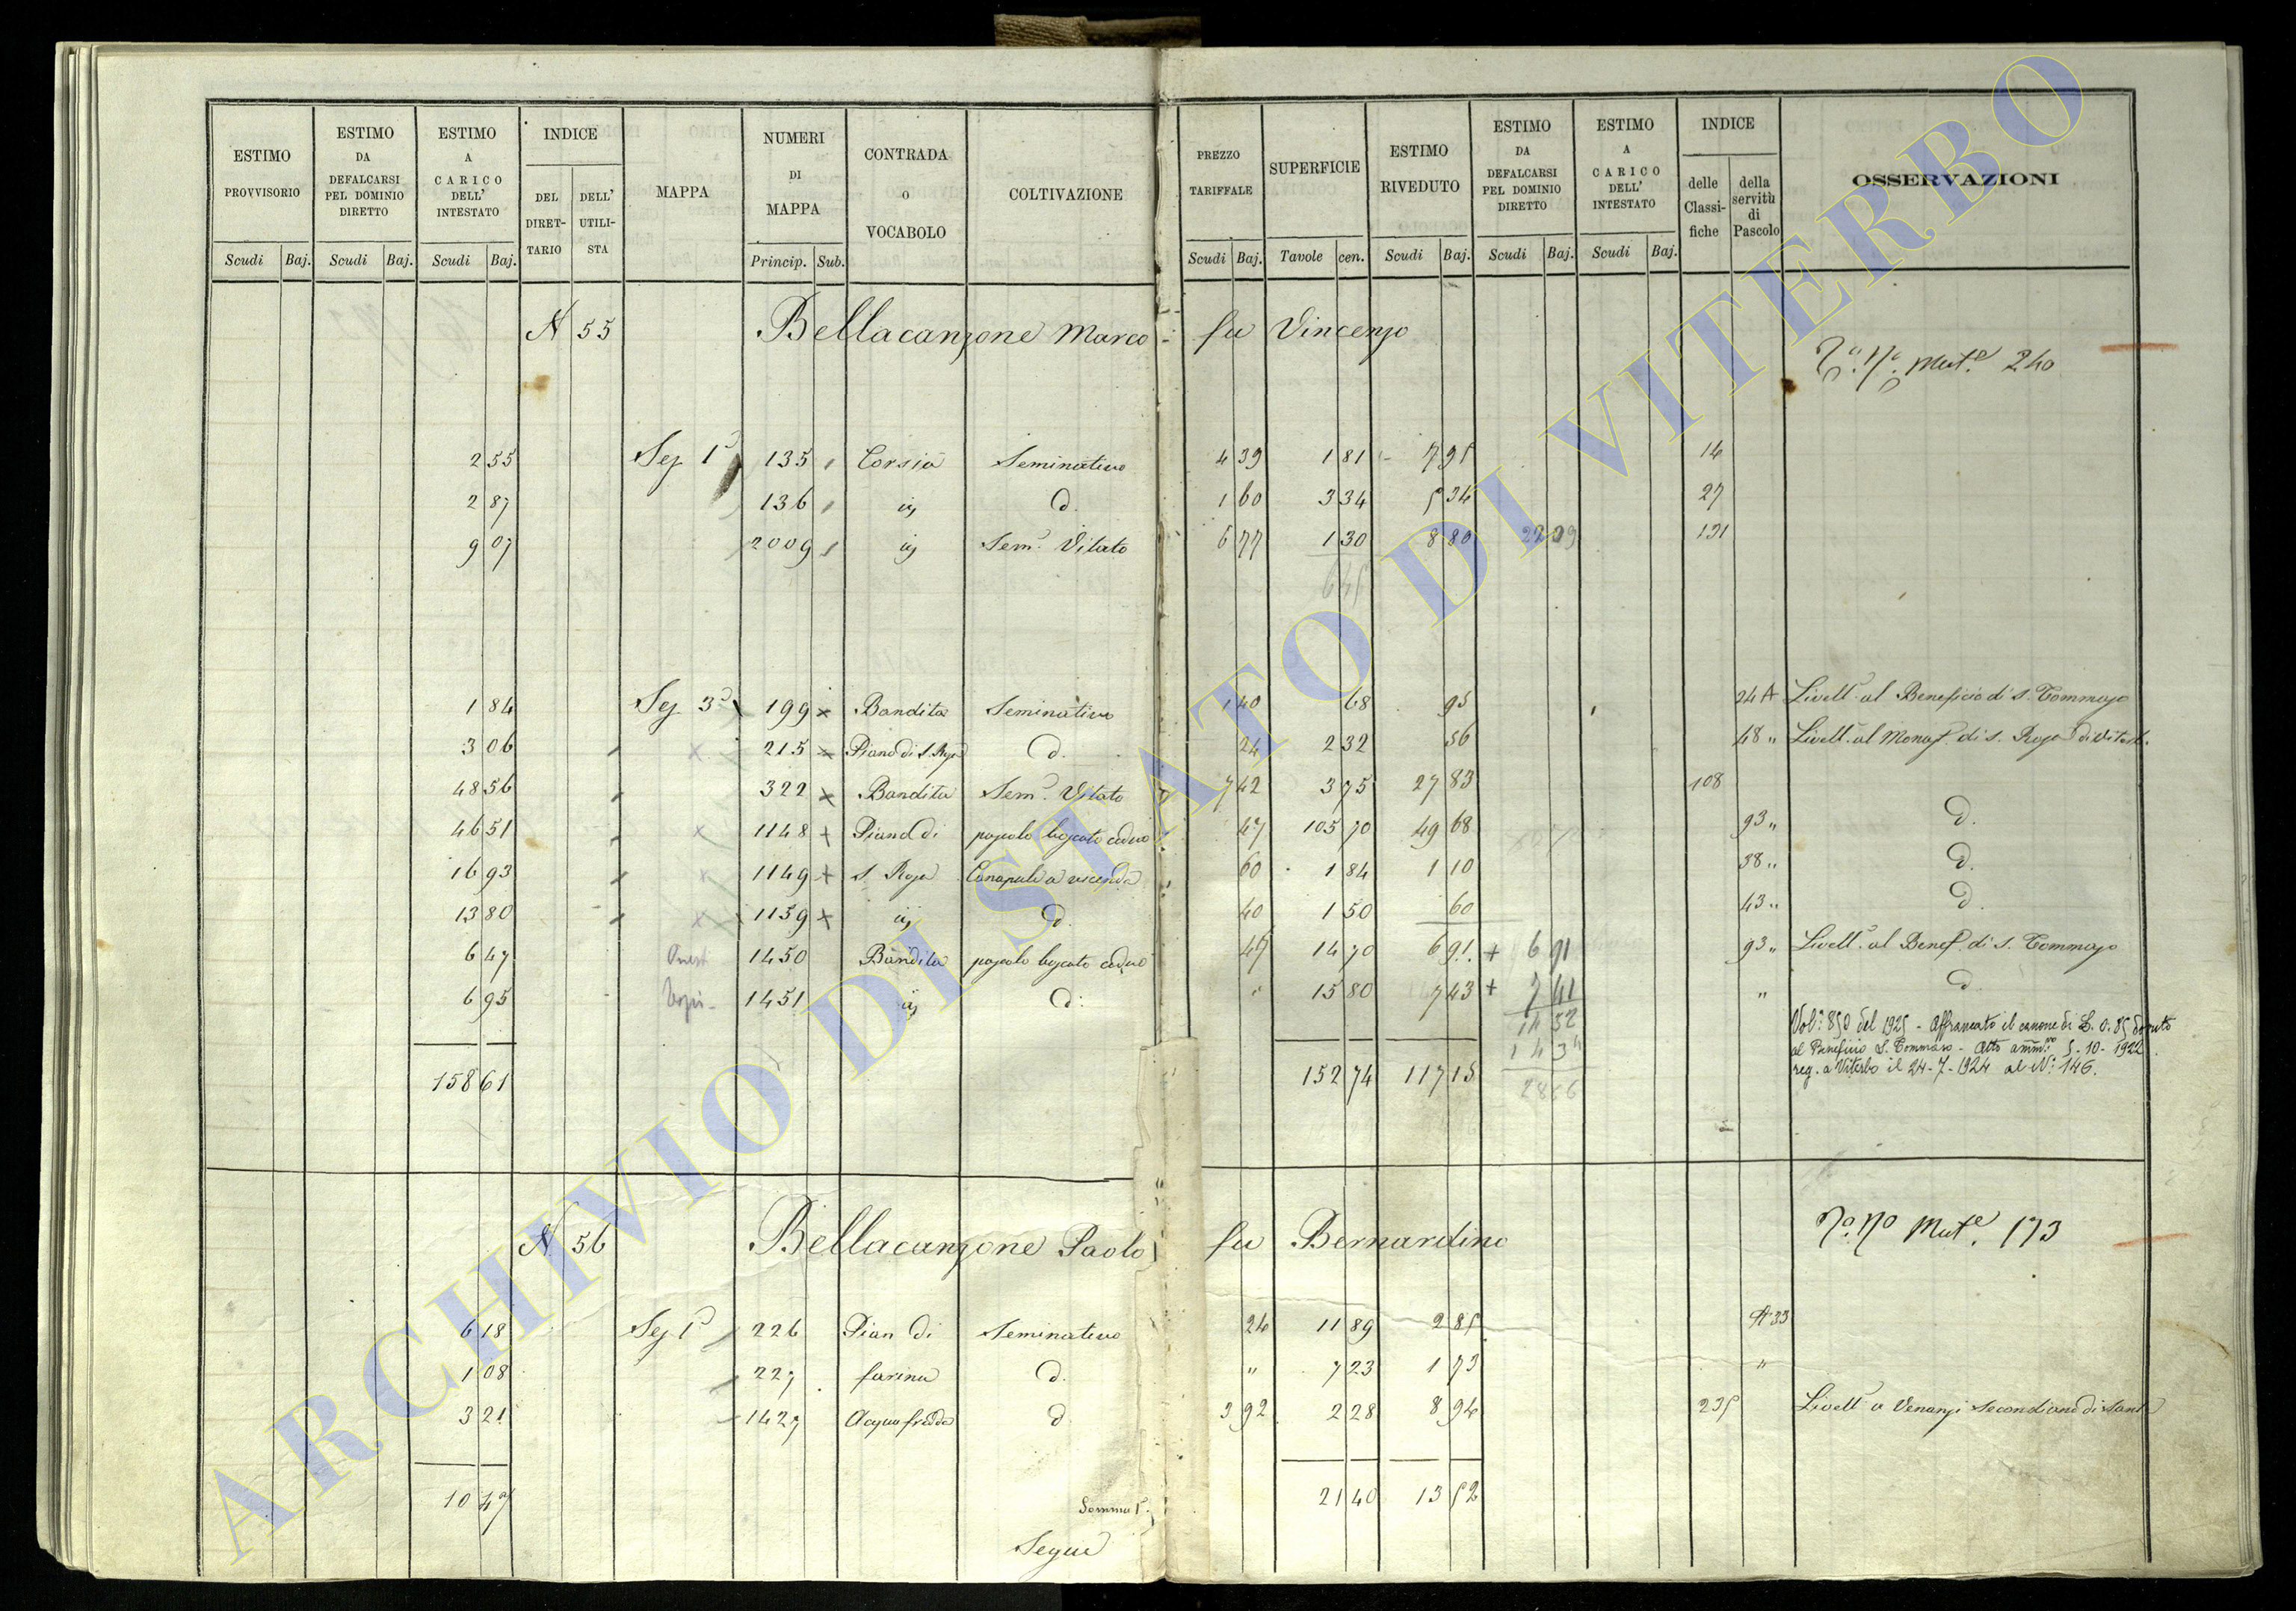 ESTIMO PROVVISORIO Scudi Baj.
ESTIMO DA DEFALCARSI PEL DOMINIO DIRETTO Scudi Baj.
ESTIMO A CARICO DELL' INTESTATO Scudi Baj.
INDICE DEL DIRET- TARIO DELL' UTILI- STA
MAPPA
NUMERI DI MAPPA Princip. Sub.
CONTRADA o VOCABOLO
COLTIVAZIONE
PREZZO TARIFFALE Scudi Baj.
SUPERFICIE Tavole cen.
ESTIMO RIVEDUTO Scudi Baj.
ESTIMO DA DEFALCARSI PEL DOMINIO DIRETTO Scudi Baj.
ESTIMO A CARICO DELL' INTESTATO Scudi Baj.
INDICE delle Classi- fiche della servitù di Pascolo
OSSERVAZIONI
N 55 Bellacanzone Marco fu Vincenzo
Mut.e 240
2 55 Sez 1a 135 Corsia Seminativo 4 39 1 81 7 95 14
2 87 136 id d. 1 60 3 34 5 34 27
9 07 2009 id Sem.o Vitato 6 77 1 30 8 80 22 09 131
6 45
1 84 Sez 3a 199 Bandita Seminativo 1 40 68 95 24 A Livell.o al Beneficio di S. Tommaso
3 06 215 Piano di S. Rosa d. 24 2 32 56 48 " Livell.o al Monas. di S. Rosa di Viterb.
48 56 322 Bandita Sem.o Vitato 7 42 3 75 27 83 108
46 51 1148 Piano di pascolo boscato ceduo 47 105 70 49 68 93 " d.
16 93 1149 S. Rosa Canapule a vicenda 60 1 84 1 10 38 " d.
13 80 1159 id d. 40 1 50 60 43 " d.
6 47 1450 Bandita pascolo boscato ceduo 47 14 70 6 91 + 6 91 93 " Livell.o al Benef. di S. Tommaso
6 95 1451 id d. " 15 80 7 43 + 7 41 " d.
14 32
1 43
28 66
Vol: 850 del 1925 - Affrancato il canone di L. 0.85 dovuto
al Beneficio S. Tommaso - Atto amm.vo 5-10-1922
reg. a Viterbo il 24-7-1924 al N: 146.
158 61 152 74 117 15
N 56 Bellacanzone Paolo fu Bernardino
Mut.e 173
6 18 Sez 1a 226 Pian di Seminativo 24 11 89 2 85 A 33
1 08 227 farina d. " 7 23 1 73 "
3 21 1427 Acqua fredda d 3 92 2 28 8 94 235 Livell.o a Venanzi Secondiano di Sante
10 47 Somma 1a 21 40 13 52
Segue
ARCHIVIO DI STATO DI VITERBO